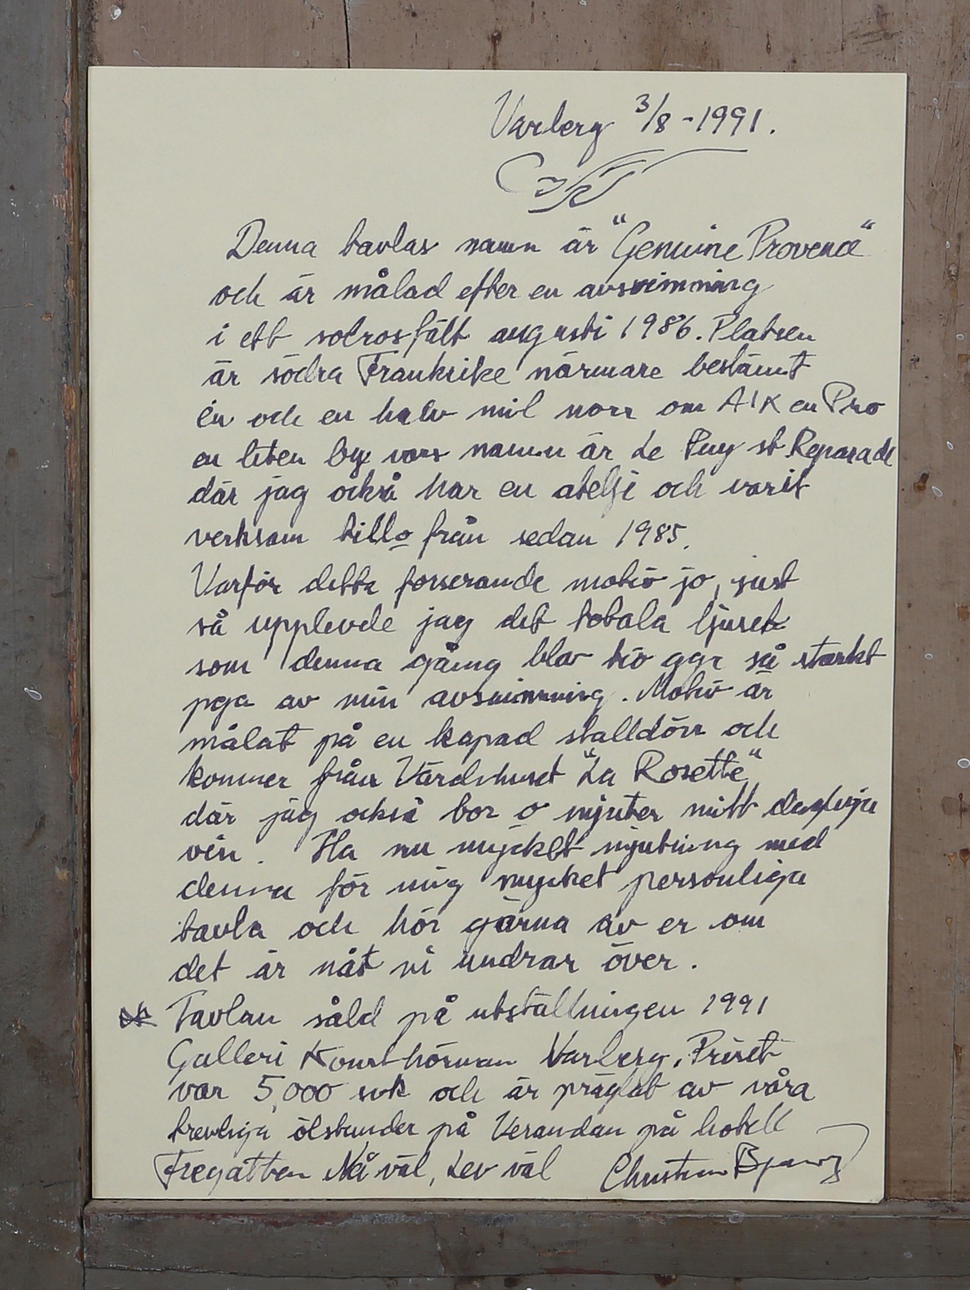 Varberg 3/8 - 1991.
Denna tavlas namn är "Genuine Provence"
och är målad efter en avsvimning
i ett solrosfält augusti 1986. Platsen
är södra Frankrike närmare bestämt
en och en halv mil norr om AIX en Pro
en liten by vars namn är Le Puy st Reparade
där jag också har en atelje och varit
verksam till o från sedan 1985.
Varför detta forserande motiv jo, just
så upplevde jag det totala ljuset
som denna gång blev tio ggr så starkt
pga av min avsvimning. Motiv är
målat på en kapad stalldörr och
kommer från Värdshuset "La Rosette"
där jag också bor o njuter mitt
vin. Ha nu mycket njutning med
denna för mig mycket personliga
tavla och hör gärna av er om
det är nåt ni undrar över.
Tavlan såld på utställningen 1991
Galleri Konsthörnan Varberg, Priset
var 5,000 svk och är präglat av våra
trevliga ölstunder på Verandan på hotell
Fregatten Må väl, Lev väl Christian